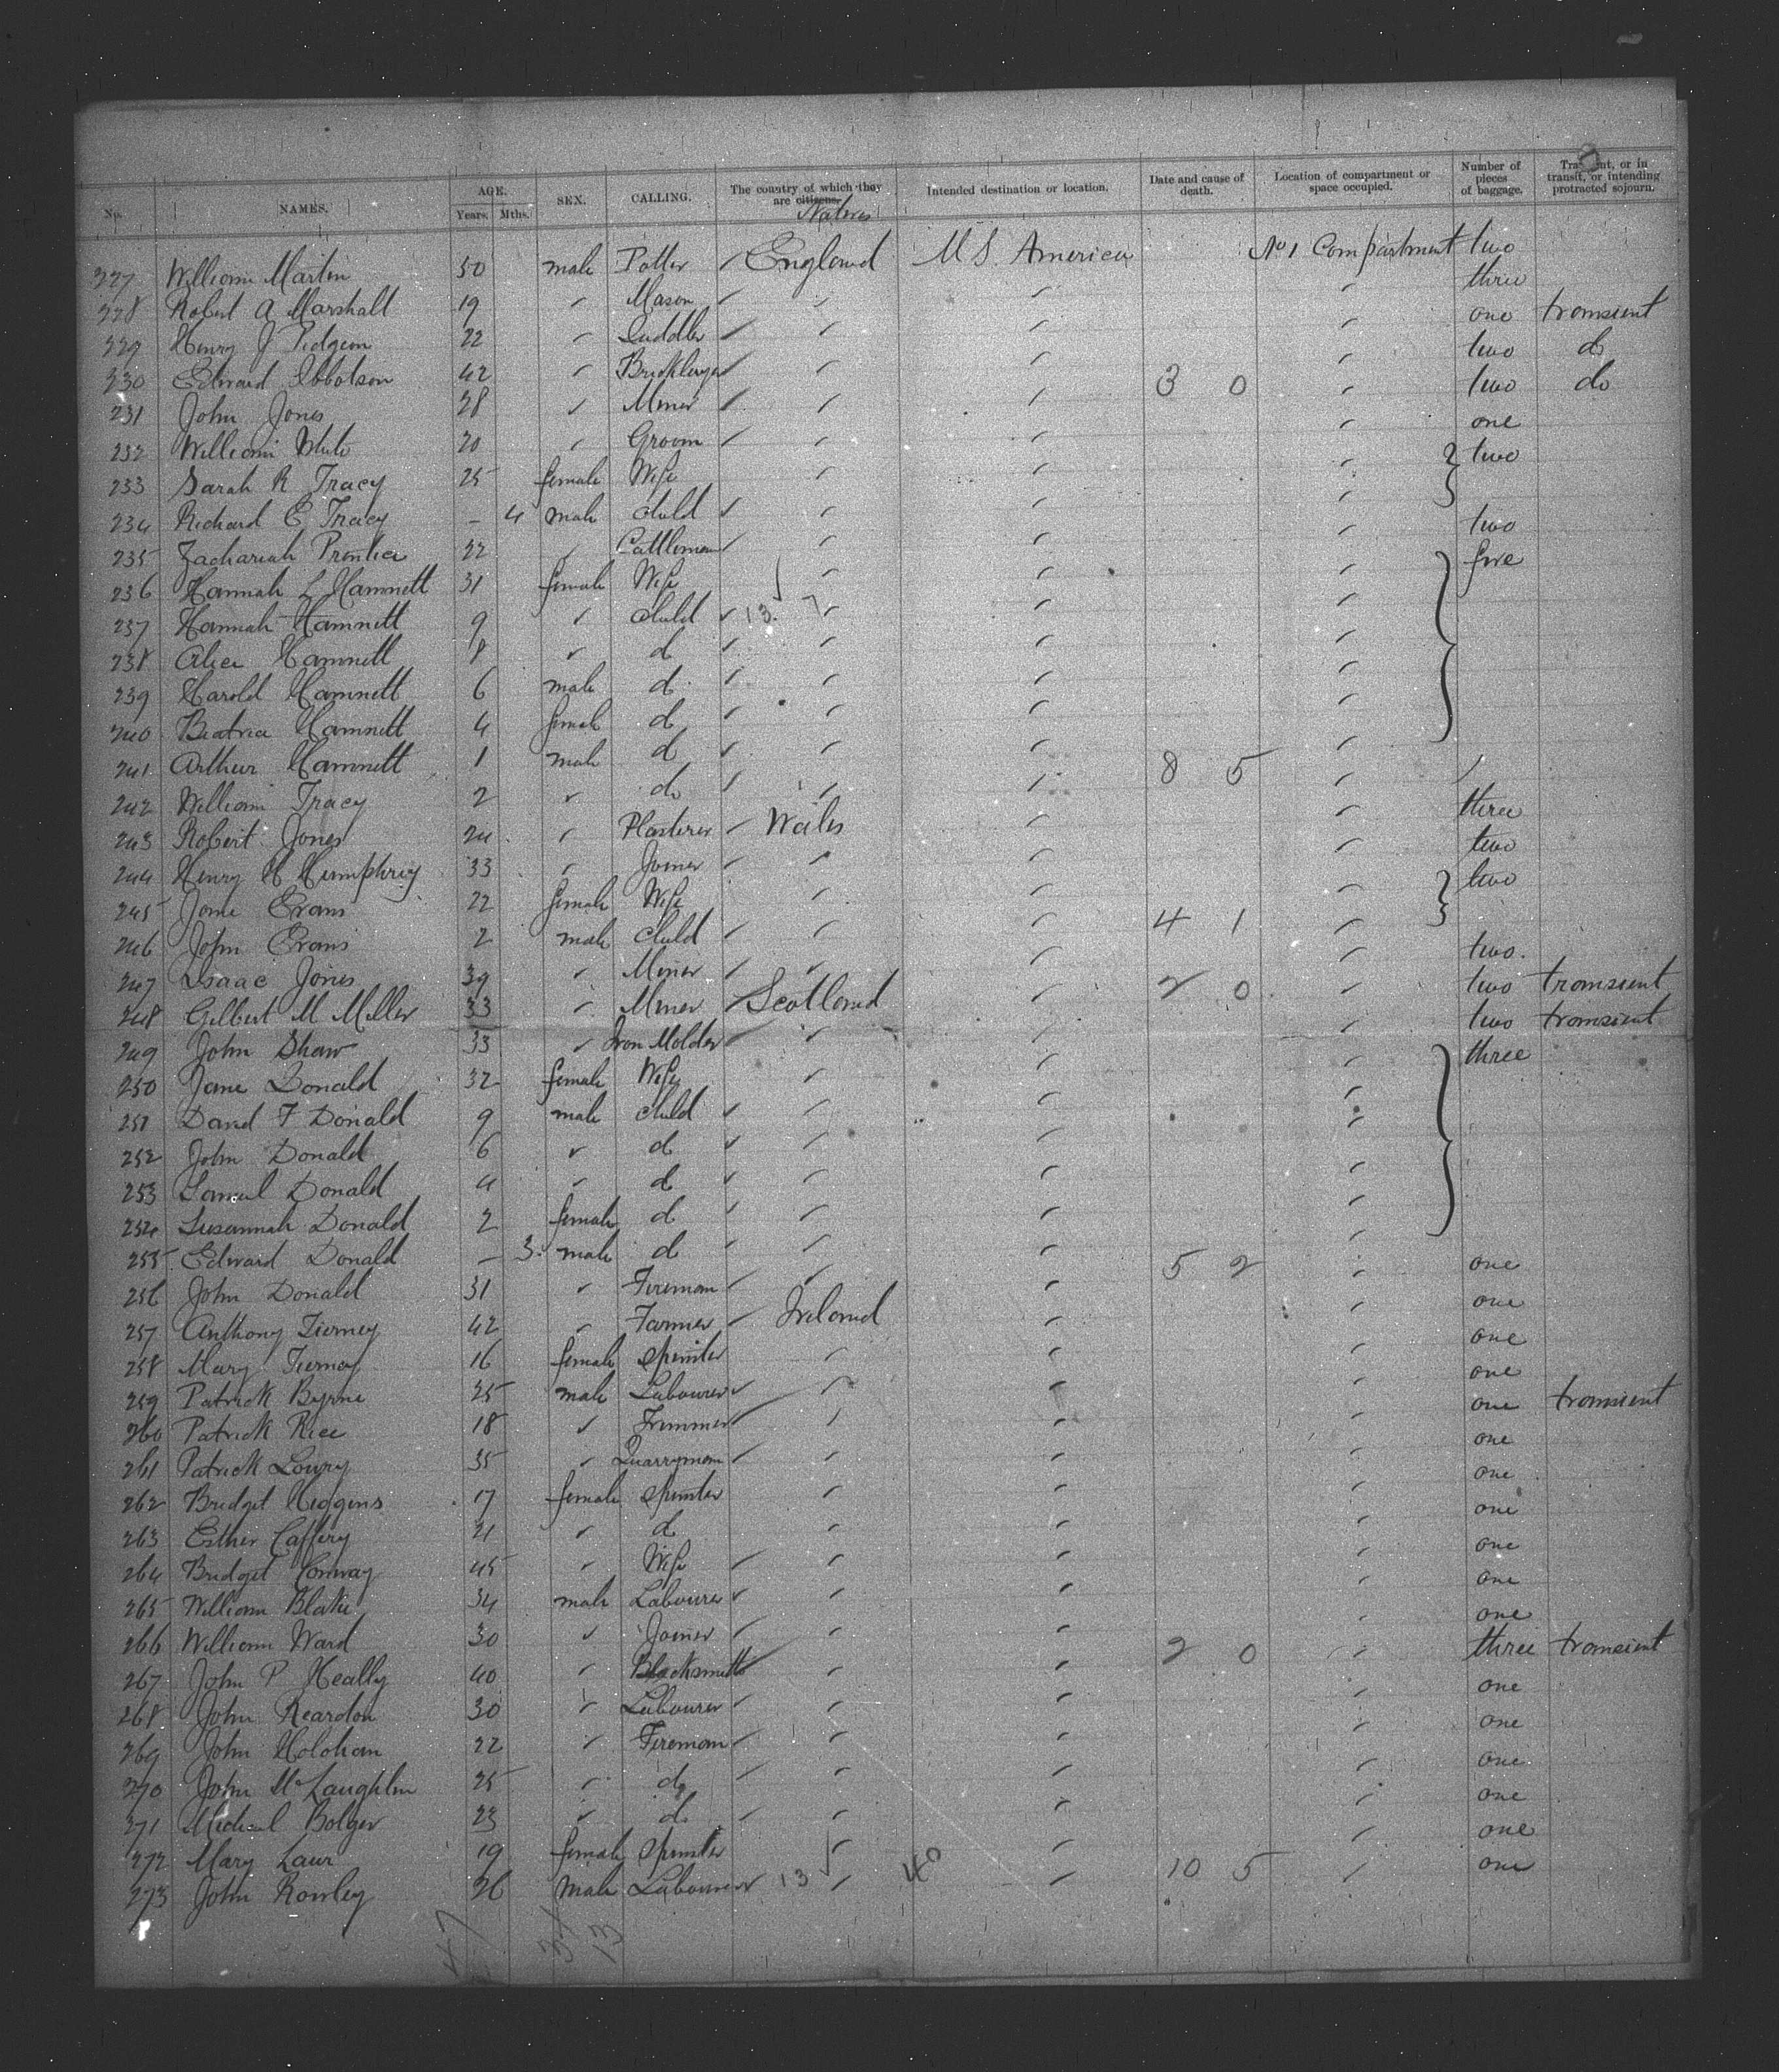 No. NAMES. AGE. Years. Mths. SEX. CALLING. The country of which they are citizens. Natives Intended destination or location. Date and cause of death. Location of compartment or space occupied. Number of pieces of baggage. Transient, or in transit, or intending protracted sojourn.
227 William Martin 50 male Potter ✓ England U S. America No 1 Compartment two
228 Robert A Marshall 19 " Mason ✓ " " " three
229 Henry J Pidgeon 22 " Saddler ✓ " " " one transient
230 Edward Ibbotson 42 " Bricklayer ✓ " " " two do
231 John Jones 28 " Miner ✓ " " 3 0 " two do
232 William White 20 " Groom ✓ " " " one
233 Sarah R Tracy 25 female Wife " " " two
234 Richard E Tracy - 4 male child ✓ " " "
235 Zachariah Prentice 22 " Cattleman ✓ " " " two
236 Hannah L Hamnett 31 female Wife " " " five
237 Hannah Hamnett 9 " child ✓ 13. 7 " " "
238 Alice Hamnett 8 " do ✓ " " "
239 Harold Hamnett 6 male do ✓ " " "
240 Beatrice Hamnett 4 female do ✓ " " "
241 Arthur Hamnett 1 male do ✓ " " "
242 William Tracy 2 " do ✓ " " 8 5 " /
243 Robert Jones 24 " Plasterer ✓ Wales " " three
244 Henry H Humphrey 33 " Joiner ✓ " " " two
245 Jane Evans 22 female Wife " " " two
246 John Evans 2 male child ✓ " " 4 1 "
247 Isaac Jones 39 " Miner ✓ " " " two.
248 Gilbert M Miller 33 " Miner ✓ Scotland " 2 0 " two transient
249 John Shaw 33 " Iron Molder ✓ " " " two transient
250 Jane Donald 32 female Wife " " " three
251 David F Donald 9 male child ✓ " " "
252 John Donald 6 " do ✓ " " "
253 Samuel Donald 4 " do ✓ " " "
254 Susannah Donald 2 female do ✓ " " "
255 Edward Donald - 3. male do ✓ " " "
256 John Donald 31 " Fireman ✓ " " 5 2 " one
257 Anthony Tierney 42 " Farmer ✓ Ireland " " one
258 Mary Tierney 16 female Spinster " " " one
259 Patrick Byrne 25 male Labourer ✓ " " " one
260 Patrick Rice 18 " Trimmer ✓ " " " one transient
261 Patrick Lowry 35 " Quarryman ✓ " " " one
262 Bridget Higgins 17 female Spinster " " " one
263 Esther Caffery 21 " do " " " one
264 Bridget Conway 45 " Wife ✓ " " " one
265 William Blake 34 male Labourer ✓ " " " one
266 William Ward 30 " Joiner ✓ " " " one
267 John P Heally 40 " Blacksmith ✓ " " 2 0 " three transient
268 John Reardon 30 " Labourer ✓ " " " one
269 John Holohan 22 " Fireman ✓ " " " one
270 John McLaughlin 25 " do ✓ " " " one
271 Michael Bolger 23 " do ✓ " " " one
272 Mary Laur 19 female Spinster " " " one
273 John Rowley 26 Male Labourer ✓ 13 " 40 " 10 5 " one
47 34 13